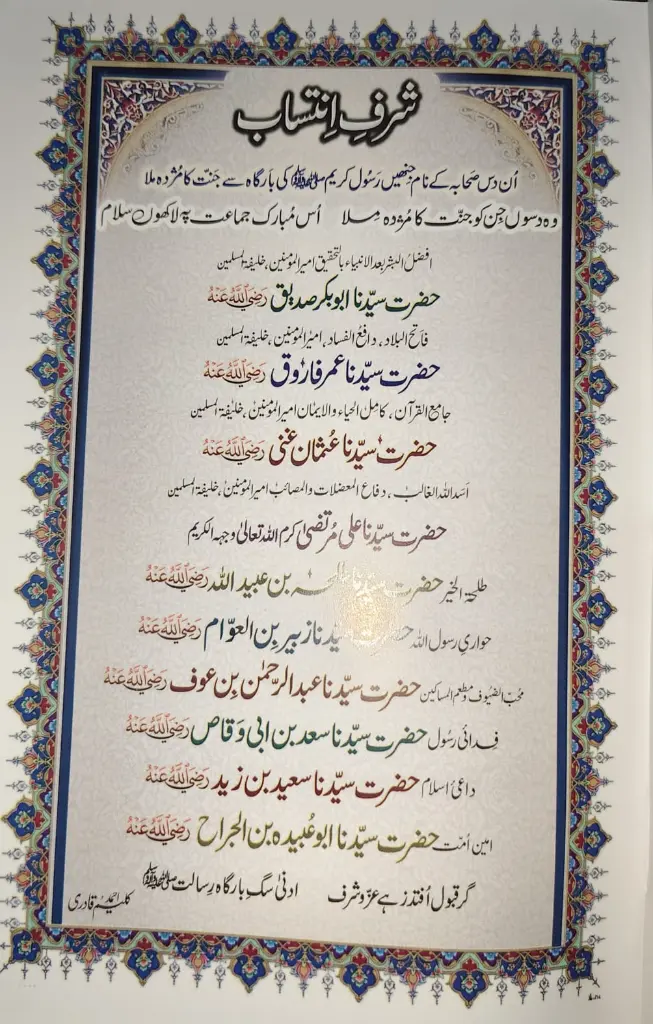 شرفِ اِنتساب
اُن دس صحابہ کے نام جنھیں رَسُول کریم ﷺ کی بارگاہ سے جنّت کا مُژدہ ملا
وہ دسوں جِن کو جنّت کا مُژدہ مِلا اُس مُبارک جماعت پہ لاکھوں سلام
افضلُ البشر بعد الانبیاء بالتحقیق امیر المؤمنین، خلیفۃ المسلمین
حضرت سیّدنا ابوبکر صدیق رَضِیَ اللّٰہُ عَنْہُ
فاتح البلاد، دافعُ الفساد، امیرُ المؤمنین، خلیفۃ المسلمین
حضرت سیّدنا عمر فاروق رَضِیَ اللّٰہُ عَنْہُ
جامع القرآن، کامِل الحیاء والایمان امیر المؤمنین، خلیفۃ المسلمین
حضرت سیّدنا عُثمان غنی رَضِیَ اللّٰہُ عَنْہُ
اَسَد اللہ الغالب، دفاع المعضلات والمصائب امیر المؤمنین، خلیفۃ المسلمین
حضرت سیّدنا علی مُرتضیٰ کرم اللہ تعالیٰ وجہہ الکریم
طلحۃ الخیر حضرت سیّدنا طلحہ بن عبید اللہ رَضِیَ اللّٰہُ عَنْہُ
حواریِ رسول اللہ حضرت سیّدنا زبیر بِن العوّام رَضِیَ اللّٰہُ عَنْہُ
محبّ الضیوف و مطعم المساکین حضرت سیّدنا عبد الرّحمٰن بِن عوف رَضِیَ اللّٰہُ عَنْہُ
فِدائی رسُول حضرت سیّدنا سعد بن ابی وقاص رَضِیَ اللّٰہُ عَنْہُ
داعیٔ اسلام حضرت سیّدنا سعید بن زید رَضِیَ اللّٰہُ عَنْہُ
امین اُمّت حضرت سیّدنا ابو عُبیدہ بن الجراح رَضِیَ اللّٰہُ عَنْہُ
گر قبول اُفتد زہے عزّ و شرف ادنیٰ سگِ بارگاہِ رسالت ﷺ
احمد قادری